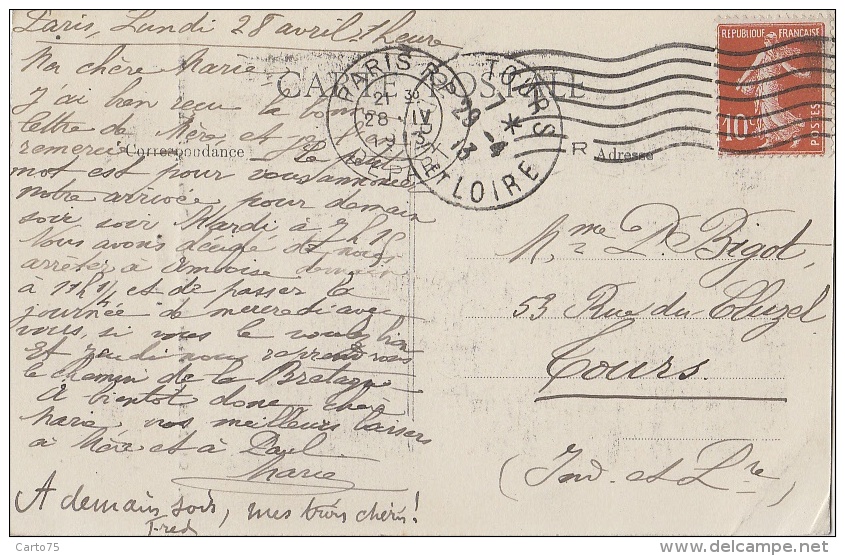 Paris, Lundi 28 avril. 1 heure
Ma chère Marie
J'ai bien reçu la bonne
lettre de Mère et je l'en
remercie. Ce petit
mot est pour vous annoncer
notre arrivée pour demain
soir soir Mardi à 7 h 19
Nous avons décidé de nous
arrêter à Amboise demain
à 11h19 et de passer la
journée de mercredi avec
vous, si vous le voulez bien
Et jeudi nous reprendrons
le chemin de la Bretagne
A bientôt donc chère
Marie, nos meilleurs baisers
à Mère et à Paul
Marie
A demain soir, mes biens chéris!
Fred
CARTE POSTALE
Correspondance
Adresse
R
PARIS R.P.
21 30
28 - IV
DÉPART
TOURS
7 *
29 - 4
13
INDRE ET LOIRE
REPUBLIQUE FRANÇAISE
10c
POSTES
Mme D. Bigot,
53 Rue du Cluzel
Tours.
(Ind. et Lre)
Carto75
www.delcampe.net